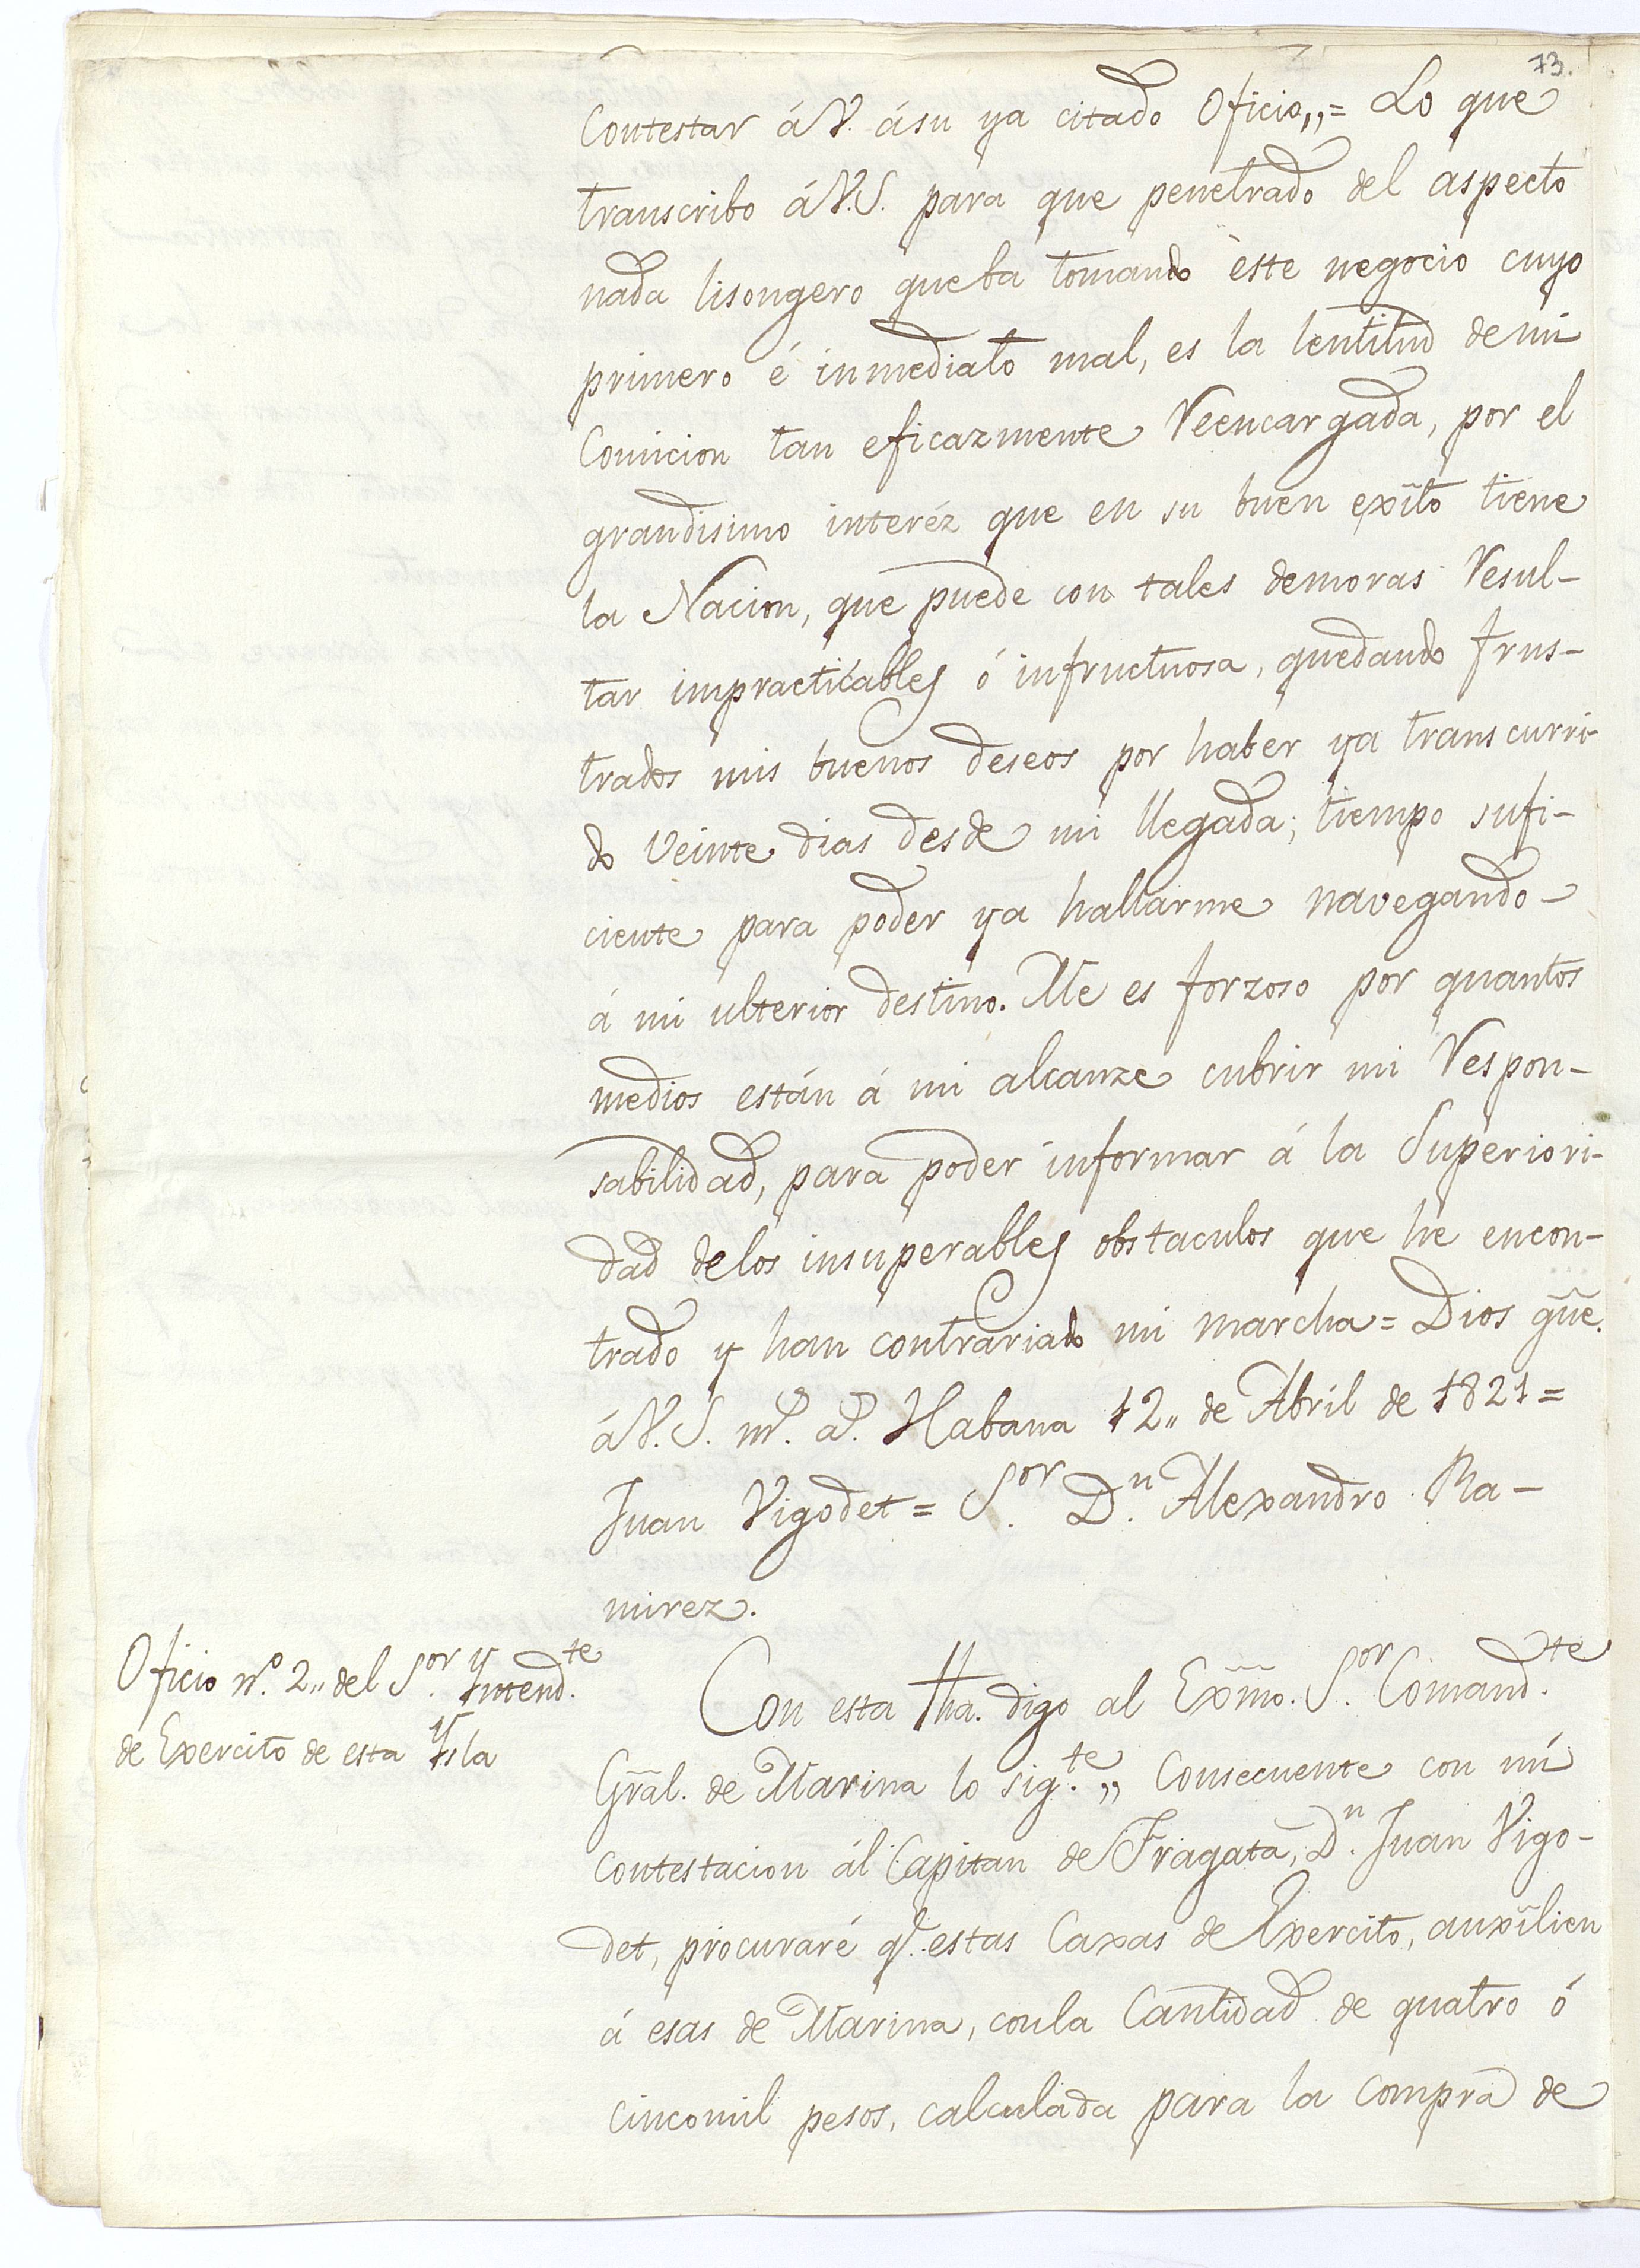 73.
Contestar á V. á su ya citado Oficio,,= Lo que
transcribo á V.S. para que penetrado del aspecto
nada lisongero que ba tomando èste negocio cuyo
primero é inmediato mal, es la lentitud de mi
Comicion tan eficazmente Reencargada, por el
grandisimo interéz que en su buen exîto tiene
la Nacion, que puede con tales demoras Resul-
tar impracticables ó infructuosa, quedando frus-
trados mis buenos deseos por haber ya transcurri-
do veinte dias desde mi llegada; tiempo sufi-
ciente para poder ya hallarme navegando
á mi ulterior destino. Me es forzoso por quantos
medios están á mi alcanze cubrir mi Respon-
sabilidad, para poder informar á la Superiori-
dad de los insuperables obstaculos que he encon-
trado y han contrariado mi marcha = Dios gũe.
á V.S. ms. as. Habana 12,, de Abril de 1821=
Juan Vigodet = Sor. Dn. Alexandro Ra-
mirez.
Oficio no. 2,, del Sor. Yntendte.
de Exercito de esta Ysla
Con esta fha. digo al Exm̃o. Sor. Comandte.
Grãl. de Marina lo sigte. ,, Consecuente con mi
contestacion ál Capitan de Fragata, Dn. Juan Vigo-
det, procuraré q. estas Caxas de Exercito, auxîlien
á esas de Marina, con la Cantidad de quatro ó
cinco mil pesos, calculada para la compra de